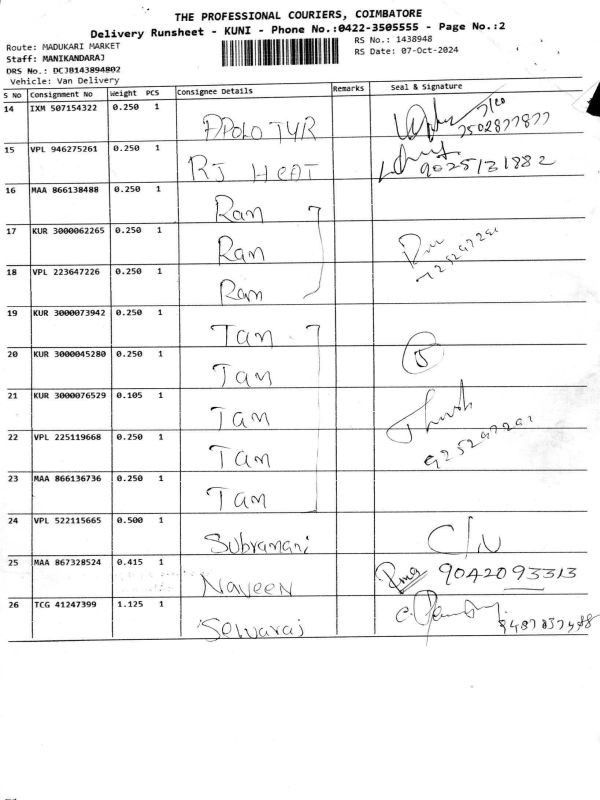 THE PROFESSIONAL COURIERS, COIMBATORE
Delivery Runsheet - KUNI - Phone No.:0422-3505555 - Page No.:2
Route: MADUKARI MARKET
RS No.: 1438948
Staff: MANIKANDARAJ
RS Date: 07-Oct-2024
DRS No.: DCJB143894802
Vehicle: Van Delivery
S No Consignment No Weight PCS Consignee Details Remarks Seal & Signature
14 IXM 507154322 0.250 1
APOLO TYR
7502877877
15 VPL 946275261 0.250 1
RJ HEAT 9025131882
16 MAA 866138488 0.250 1
Ran
17 KUR 3000062265 0.250 1
Ran
18 VPL 223647226 0.250 1
Ran
19 KUR 3000073942 0.250 1
Tan
20 KUR 3000045280 0.250 1
Tan
5
21 KUR 3000076529 0.105 1
Tan
22 VPL 225119668 0.250 1
Tan
23 MAA 866136736 0.250 1
Tan
24 VPL 522115665 0.500 1
Subramani C/N
25 MAA 867328524 0.415 1
Naveen 9042093313
26 TCG 41247399 1.125 1
Selvaraj